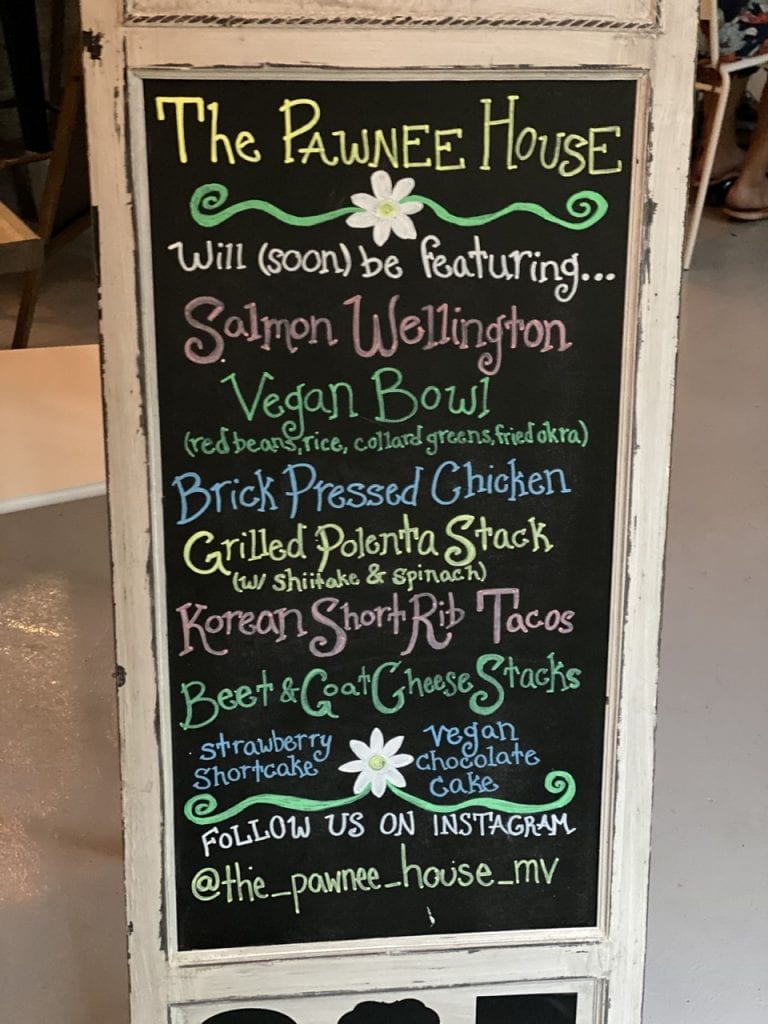 The PAWNEE HOUSE
Will (soon) be featuring...
Salmon Wellington
Vegan Bowl
(red beans, rice, collard greens, fried okra)
Brick Pressed Chicken
Grilled Polenta Stack
(w/ Shiitake & Spinach)
Korean Short Rib Tacos
Beet & Goat Cheese Stacks
Strawberry
Shortcake
Vegan
Chocolate
Cake
FOLLOW US ON INSTAGRAM
@the_pawnee_house_mv